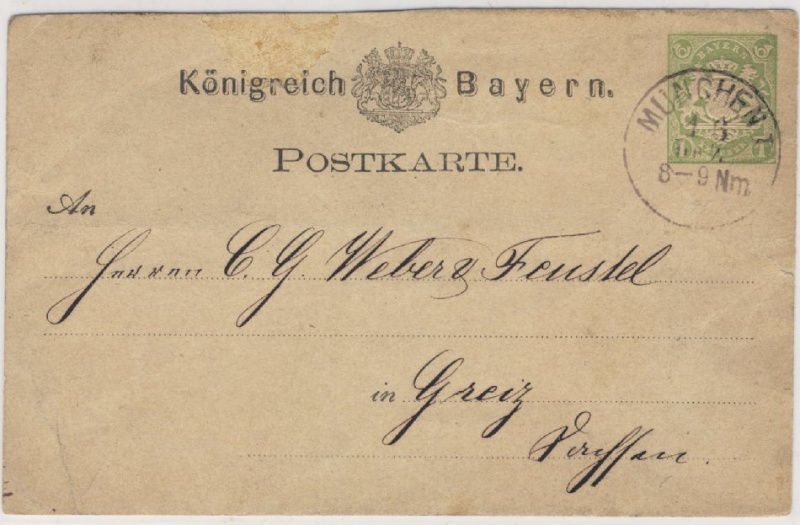 Königreich Bayern.
BAYERN
POSTKARTE.
MÜNCHEN I
8-9 Nm
An
Herren C. G. Weber & Feustel
in Greiz
Sachsen.